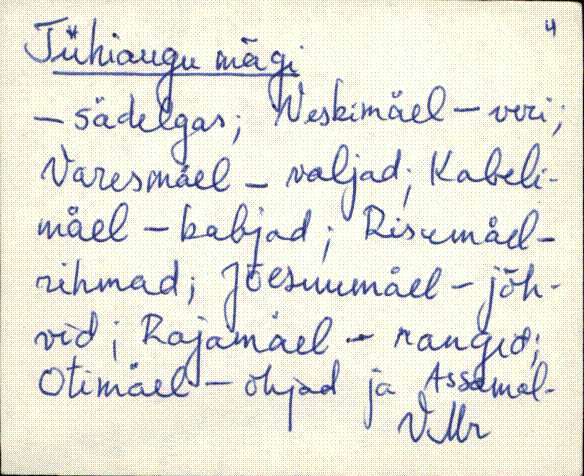 4
Tühiaugu mägi
– sädelgas; Weskimäel – veri;
Varesmäel – valjad; Kabeli-
mäel – kabjad; Risumäel –
rihmad; Jõesuumäel – jõh-
vid; Rajamäel – rangid;
Otimäel – ohjad ja Assamäl-
VMr